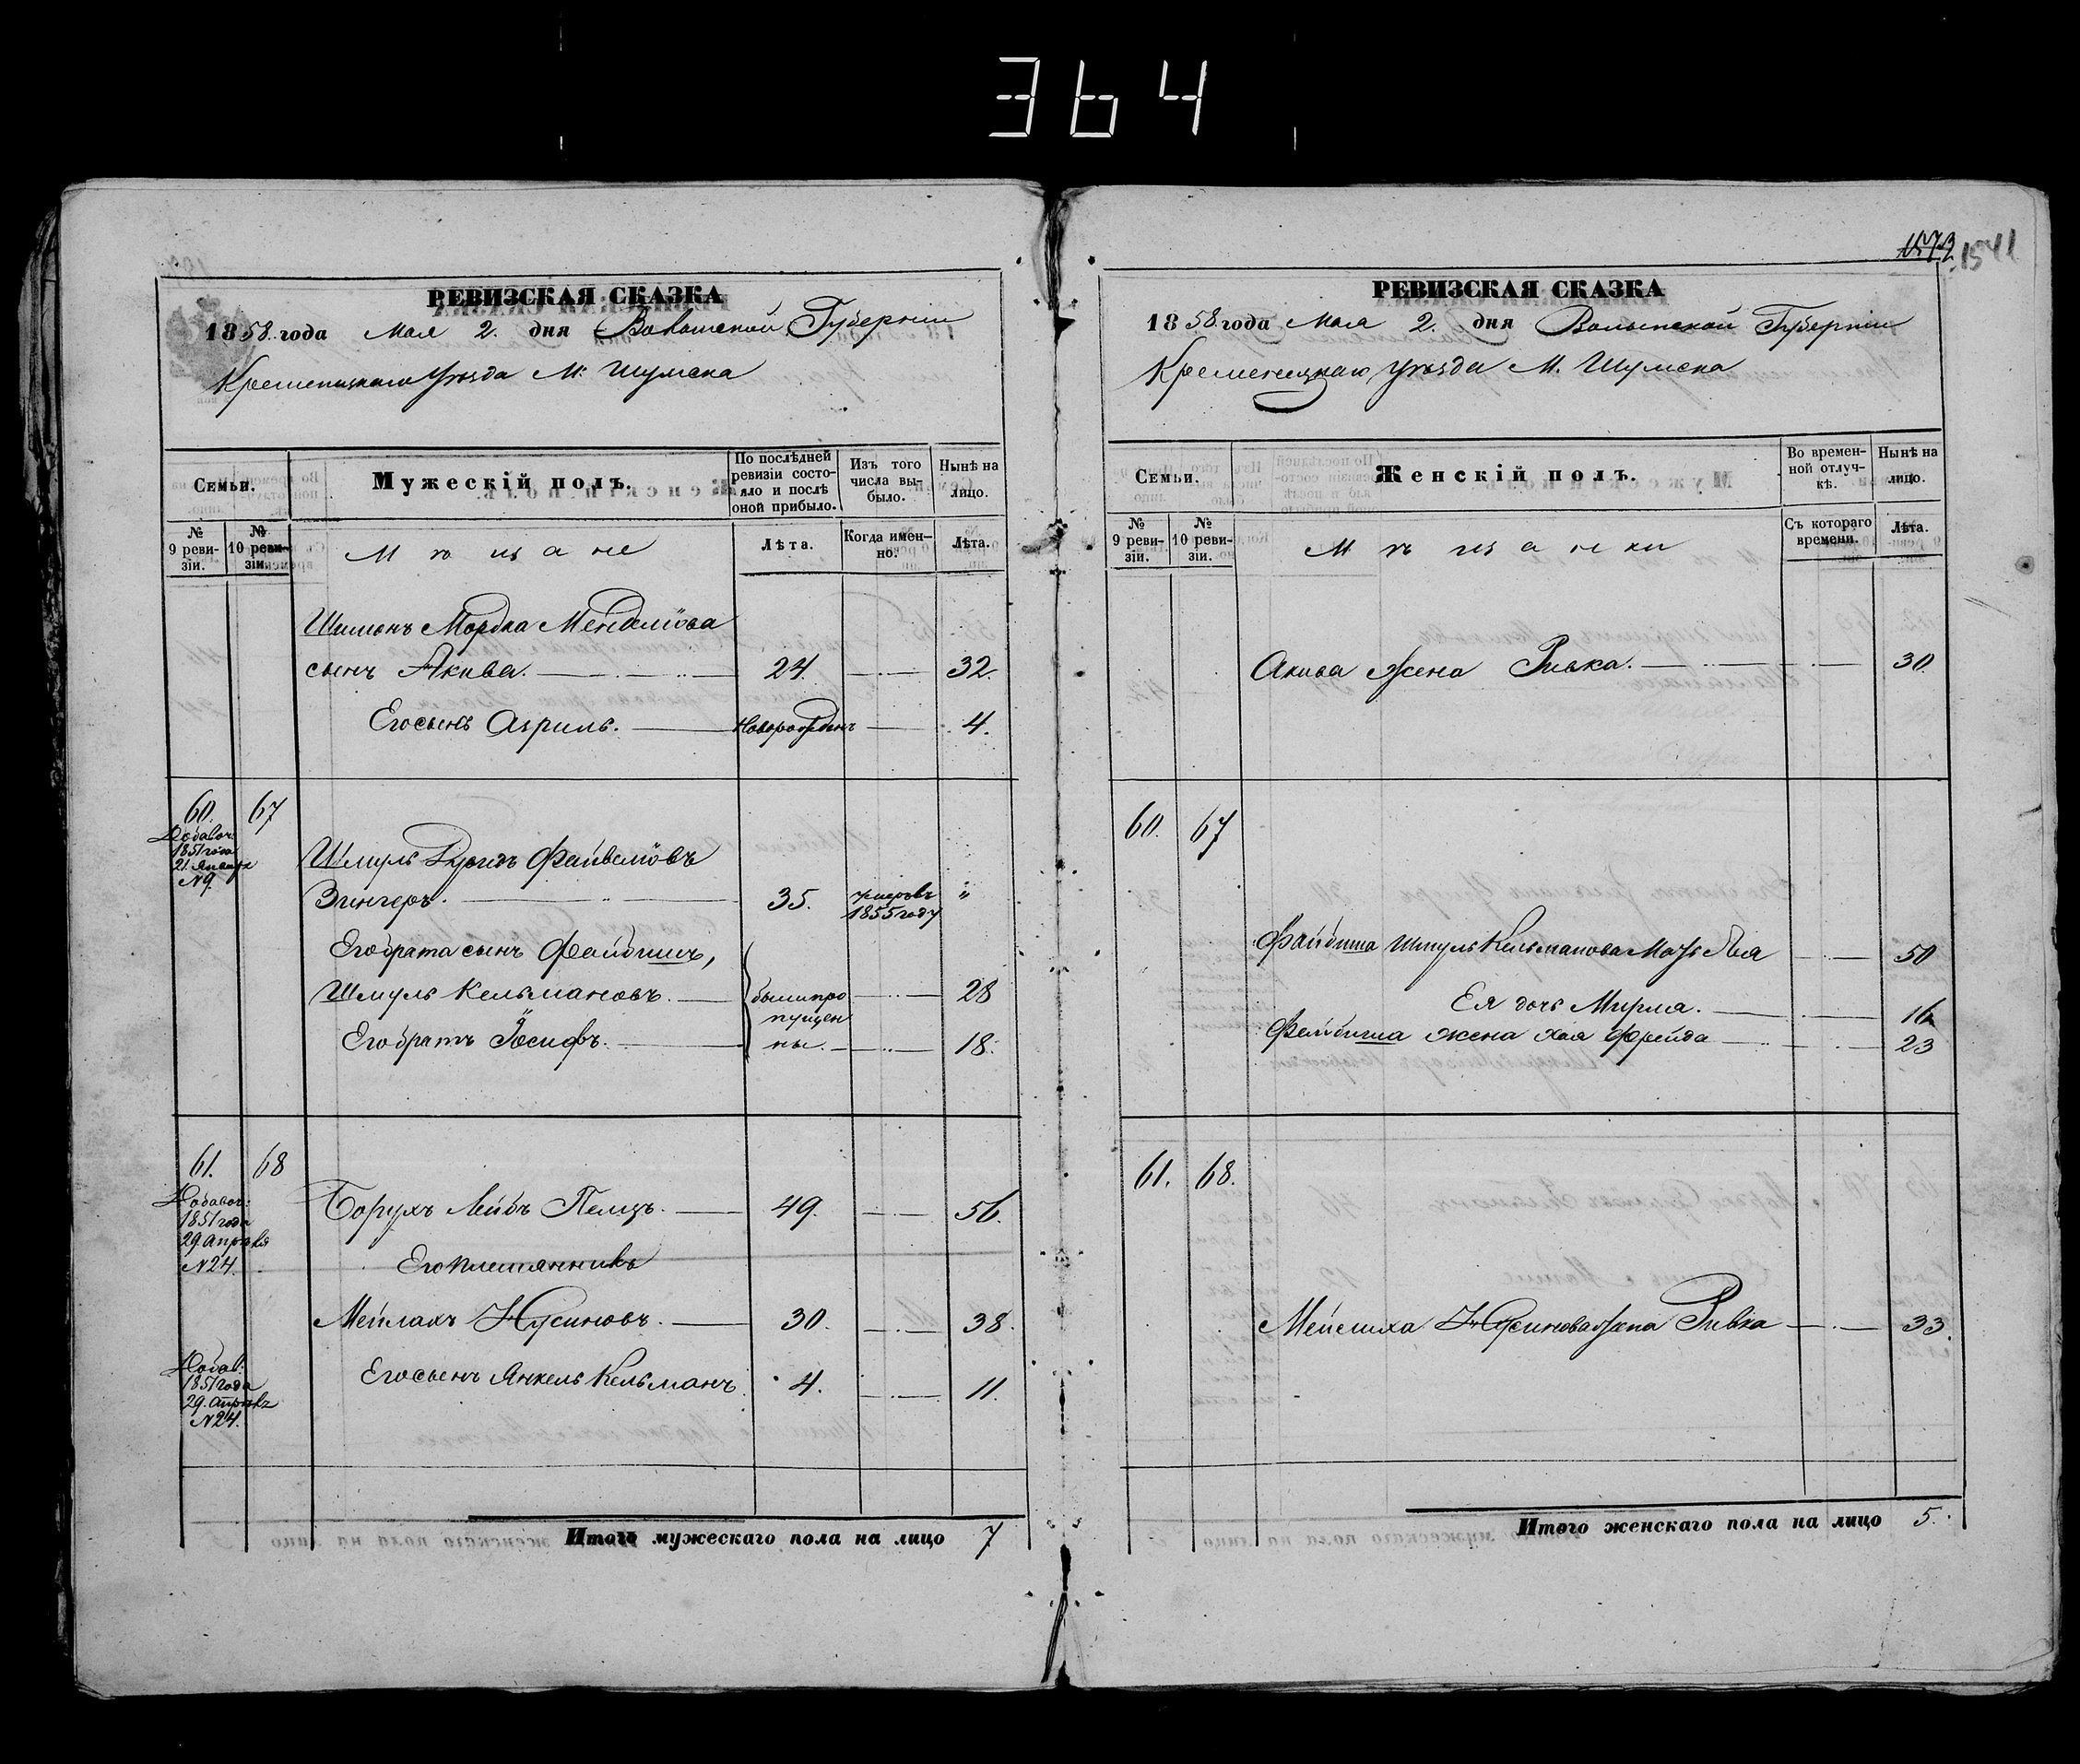 364
1573 1541
РЕВИЗСКАЯ СКАЗКА
1858 года Мая 2. дня Волынской Губернии
Кременецкаго Уѣзда М. Шумска
Семьи.
Мужескій полъ.
По послѣдней ревизіи состояло и послѣ оной прибыло.
Изъ того числа выбыло.
Нынѣ на лицо.
№ 9 ревизіи.
№ 10 ревизіи.
Мѣщане
Лѣта.
Когда именно.
Лѣта.
Шимонъ Мордка Менделiова
сынъ Акива. 24. 32.
Его сынъ Азриль. новорожденъ 4.
60. 67
Добавоч:
1851 года
21. Января
N 9.
Шмуль Дувидъ Файвелiовъ
Зингеръ. 35. умеръ въ 1855 году "
Его брата сынъ Файбишъ,
Шмуль Кельмановъ. были про 28
пущен
Его братъ Іосифъ. ны. 18.
61. 68
Добавоч:
1851 года
29. Апрѣля
N 24.
Борухъ Лейбъ Пельцъ. 49. 56.
Его племянникъ
Мейлахъ Нусиновъ. 30. 38.
Добав:
1851 года
29. Апрѣля
N 24.
Его сынъ Янкель Кельманъ 4. 11.
Итого мужескаго пола на лицо 7
РЕВИЗСКАЯ СКАЗКА
1858 года Мая 2. дня Волынской Губернии
Кременецкаго Уѣзда М. Шумска
Семьи.
Женскій полъ.
Во временной отлучкѣ.
Нынѣ на лицо.
№ 9 ревизіи.
№ 10 ревизіи.
Мѣщанки
Съ котораго времени.
Лѣта.
Акива жена Ривка. 30
60. 67
Файбиша Шмуль Кельманова Мать Лея 50
Ея дочь Мирля. 16
Файбиша жена Хая Фрейда 23
61. 68.
Мейлиха Нусинова жена Ривка 33.
Итого женскаго пола на лицо 5.